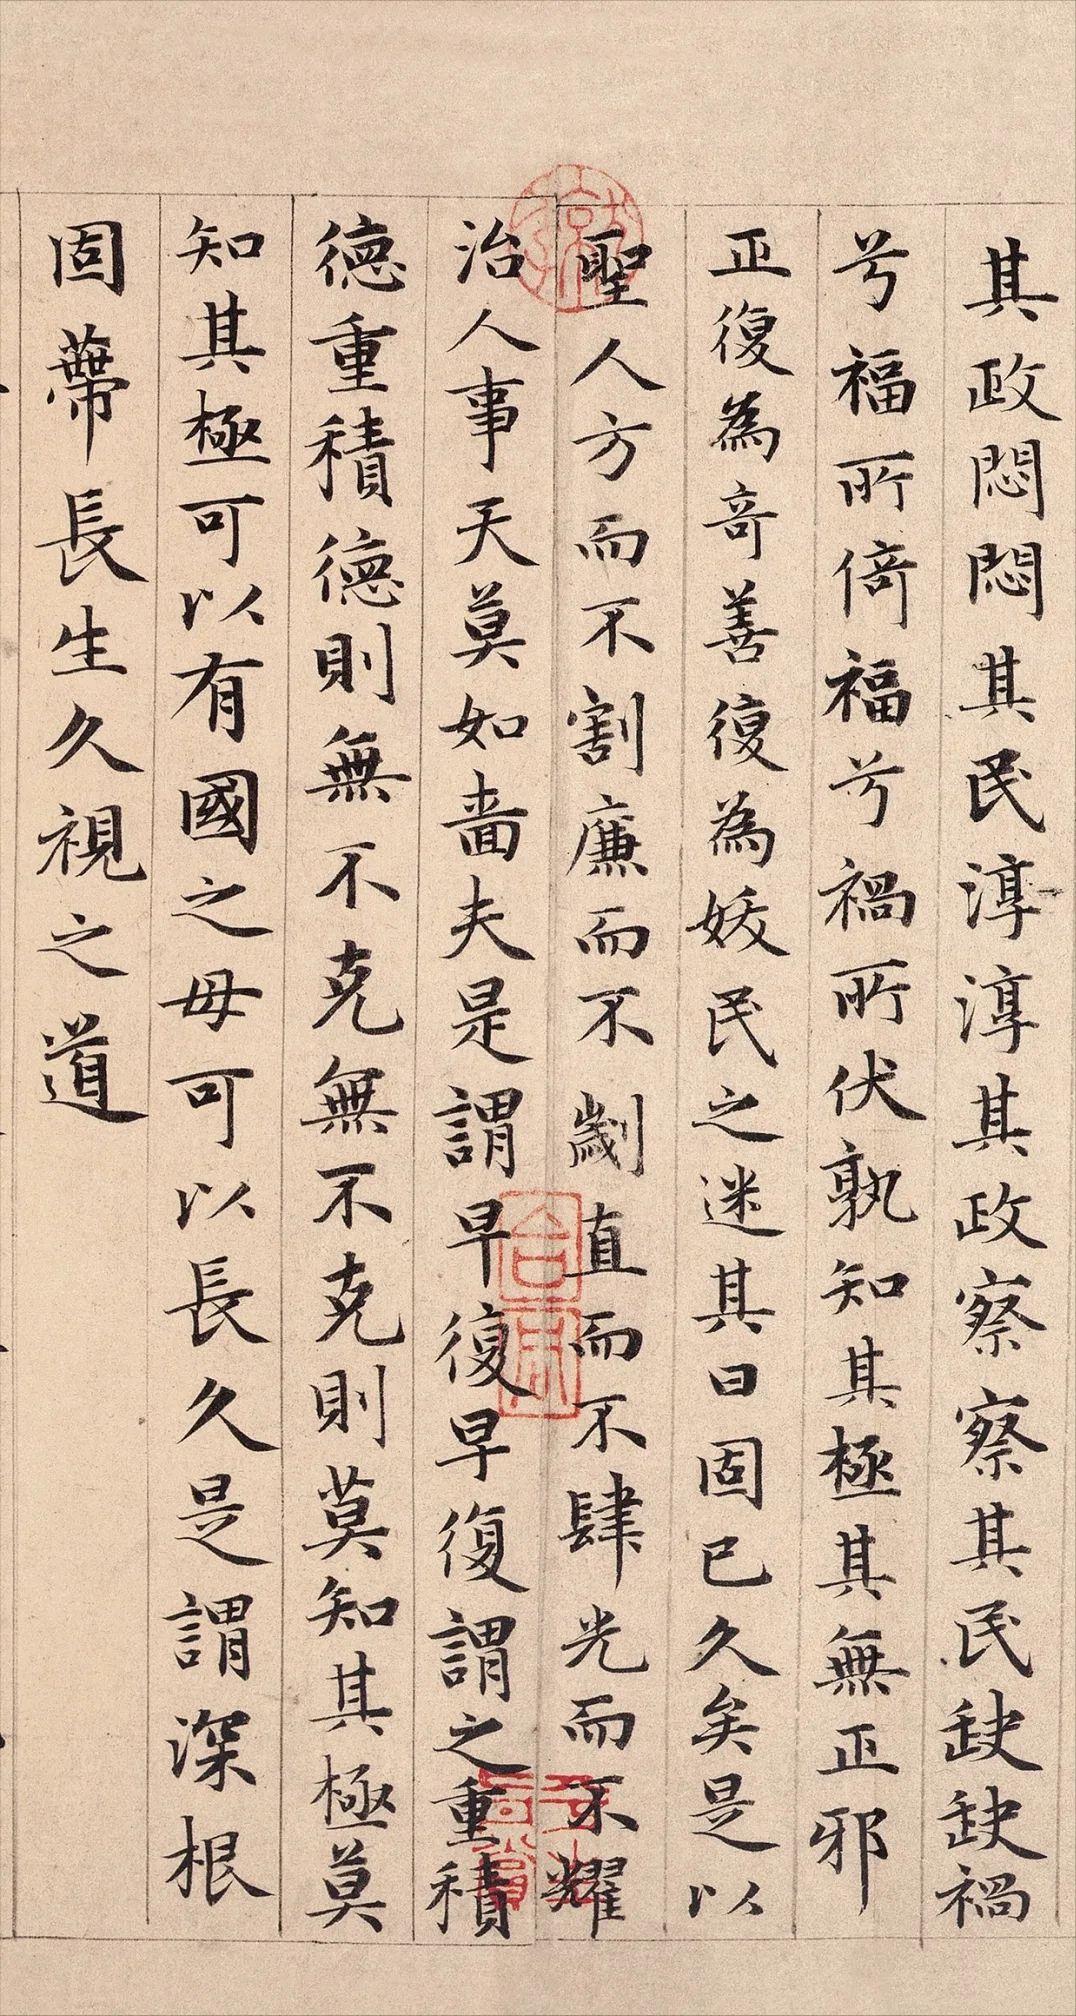 其政悶悶其民淳淳其政察察其民缺缺禍
兮福所倚福兮禍所伏孰知其極其無正邪
正復為奇善復為妖民之迷其日固已久矣是以
聖人方而不割廉而不劌直而不肆光而不耀
治人事天莫如嗇夫是謂早復早復謂之重積
德重積德則無不克無不克則莫知其極莫
知其極可以有國之母可以長久是謂深根
固蔕長生久視之道